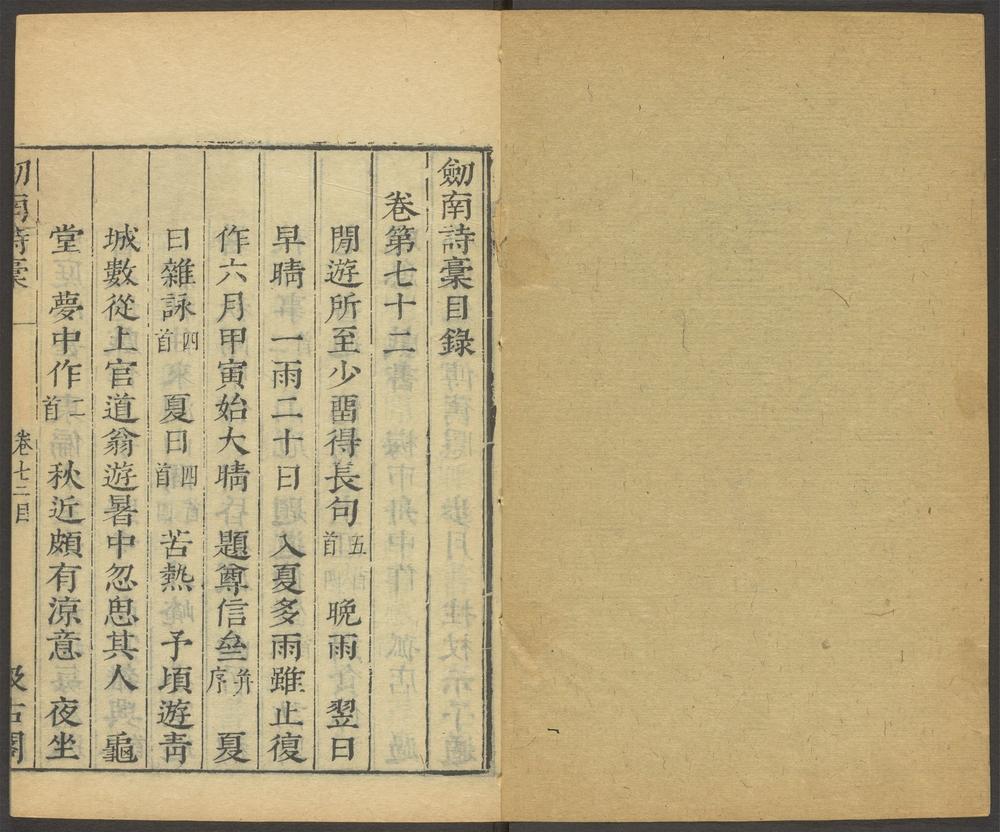 劒南詩稾目錄
卷第七十二
閒遊所至少留得長句五首 晚雨 翌日
早晴 一雨二十日 入夏多雨雖止復
作六月甲寅始大晴 題尊信堂并序 夏
日雜詠四首 夏日四首 苦熱 予頃遊青
城數從上官道翁遊暑中忽思其人 龜
堂 夢中作二首 秋近頗有涼意 夜坐
劒南詩稾 卷七二目 汲古閣